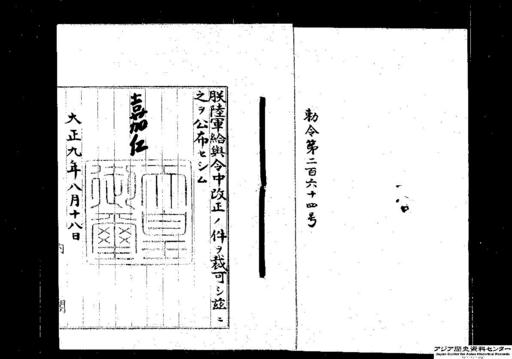 勅令第二百六十四号
朕陸軍給與令中改正ノ件ヲ裁可シ茲ニ
之ヲ公布セシム
嘉仁
天皇御璽
大正九年八月十八日
内閣
アジア歴史資料センター
Japan Center for Asian Historical Records